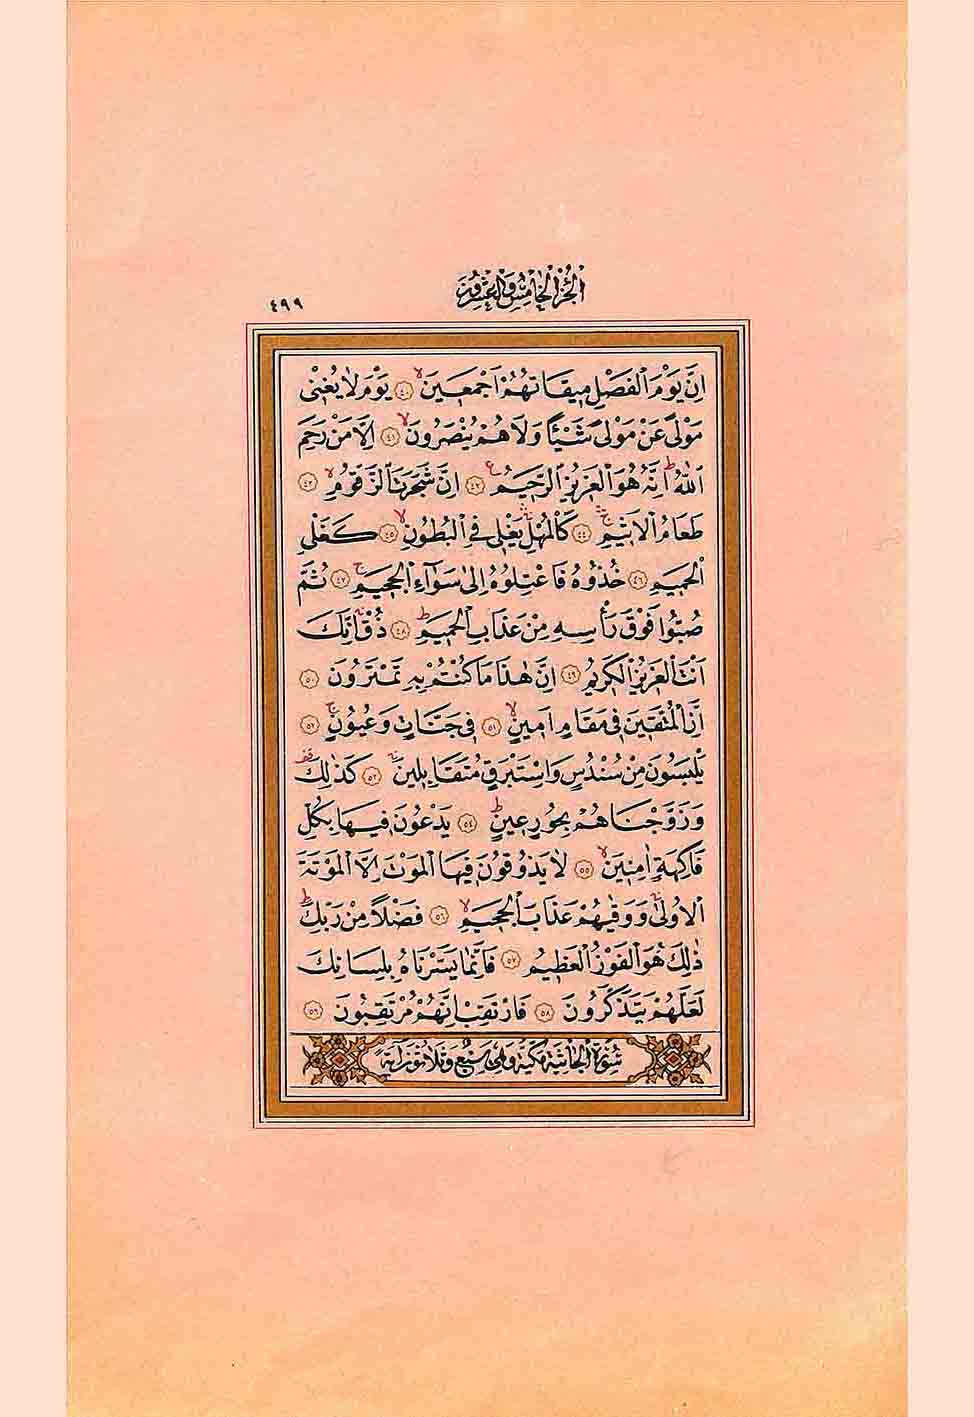 الجزء الخامس والعشرون
٤٩٩
اِنَّ يَوْمَ الْفَصْلِ مِيقَاتُهُمْ اَجْمَعِينَۙ ﴿٤٠﴾ يَوْمَ لَا يُغْنِى
مَوْلًى عَنْ مَوْلًى شَيْـًٔا وَلَا هُمْ يُنْصَرُونَۙ ﴿٤١﴾ اِلَّا مَنْ رَحِمَ
اللّٰهُۜ اِنَّهُ هُوَ الْعَزِيزُ الرَّحِيمُ ﴿٤٢﴾ اِنَّ شَجَرَتَ الزَّقُّومِۙ ﴿٤٣﴾
طَعَامُ الْاَثِيمِۚ ﴿٤٤﴾ كَالْمُهْلِۚ يَغْلِى فِى الْبُطُونِۙ ﴿٤٥﴾ كَغَلْىِ
الْحَمِيمِ ﴿٤٦﴾ خُذُوهُ فَاعْتِلُوهُ اِلٰى سَوَٓاءِ الْجَحِيمِۚ ﴿٤٧﴾ ثُمَّ
صُبُّوا فَوْقَ رَأْسِهِ مِنْ عَذَابِ الْحَمِيمِۜ ﴿٤٨﴾ ذُقْۙ اِنَّكَ
اَنْتَ الْعَزِيزُ الْكَرِيمُ ﴿٤٩﴾ اِنَّ هٰذَا مَا كُنْتُمْ بِهِ تَمْتَرُونَ ﴿٥٠﴾
اِنَّ الْمُتَّقِينَ فِى مَقَامٍ اَمِينٍۙ ﴿٥١﴾ فِى جَنَّاتٍ وَعُيُونٍۚ ﴿٥٢﴾
يَلْبَسُونَ مِنْ سُنْدُسٍ وَاِسْتَبْرَقٍ مُتَقَابِلِينَۚ ﴿٥٣﴾ كَذٰلِكَ
وَزَوَّجْنَاهُمْ بِحُورٍ عِينٍۜ ﴿٥٤﴾ يَدْعُونَ فِيهَا بِكُلِّ
فَاكِهَةٍ اٰمِنِينَۙ ﴿٥٥﴾ لَا يَذُوقُونَ فِيهَا الْمَوْتَ اِلَّا الْمَوْتَةَ
الْاُولٰىۚ وَوَقٰيهُمْ عَذَابَ الْجَحِيمِۙ ﴿٥٦﴾ فَضْلًا مِنْ رَبِّكَۜ
ذٰلِكَ هُوَ الْفَوْزُ الْعَظِيمُ ﴿٥٧﴾ فَاِنَّمَا يَسَّرْنَاهُ بِلِسَانِكَ
لَعَلَّهُمْ يَتَذَكَّرُونَ ﴿٥٨﴾ فَارْتَقِبْ اِنَّهُمْ مُرْتَقِبُونَ ﴿٥٩﴾
سُورَةُ الْجَاثِيَةِ مَكِّيَّةٌ وَهِىَ سَبْعٌ وَثَلَاثُونَ اٰيَةً